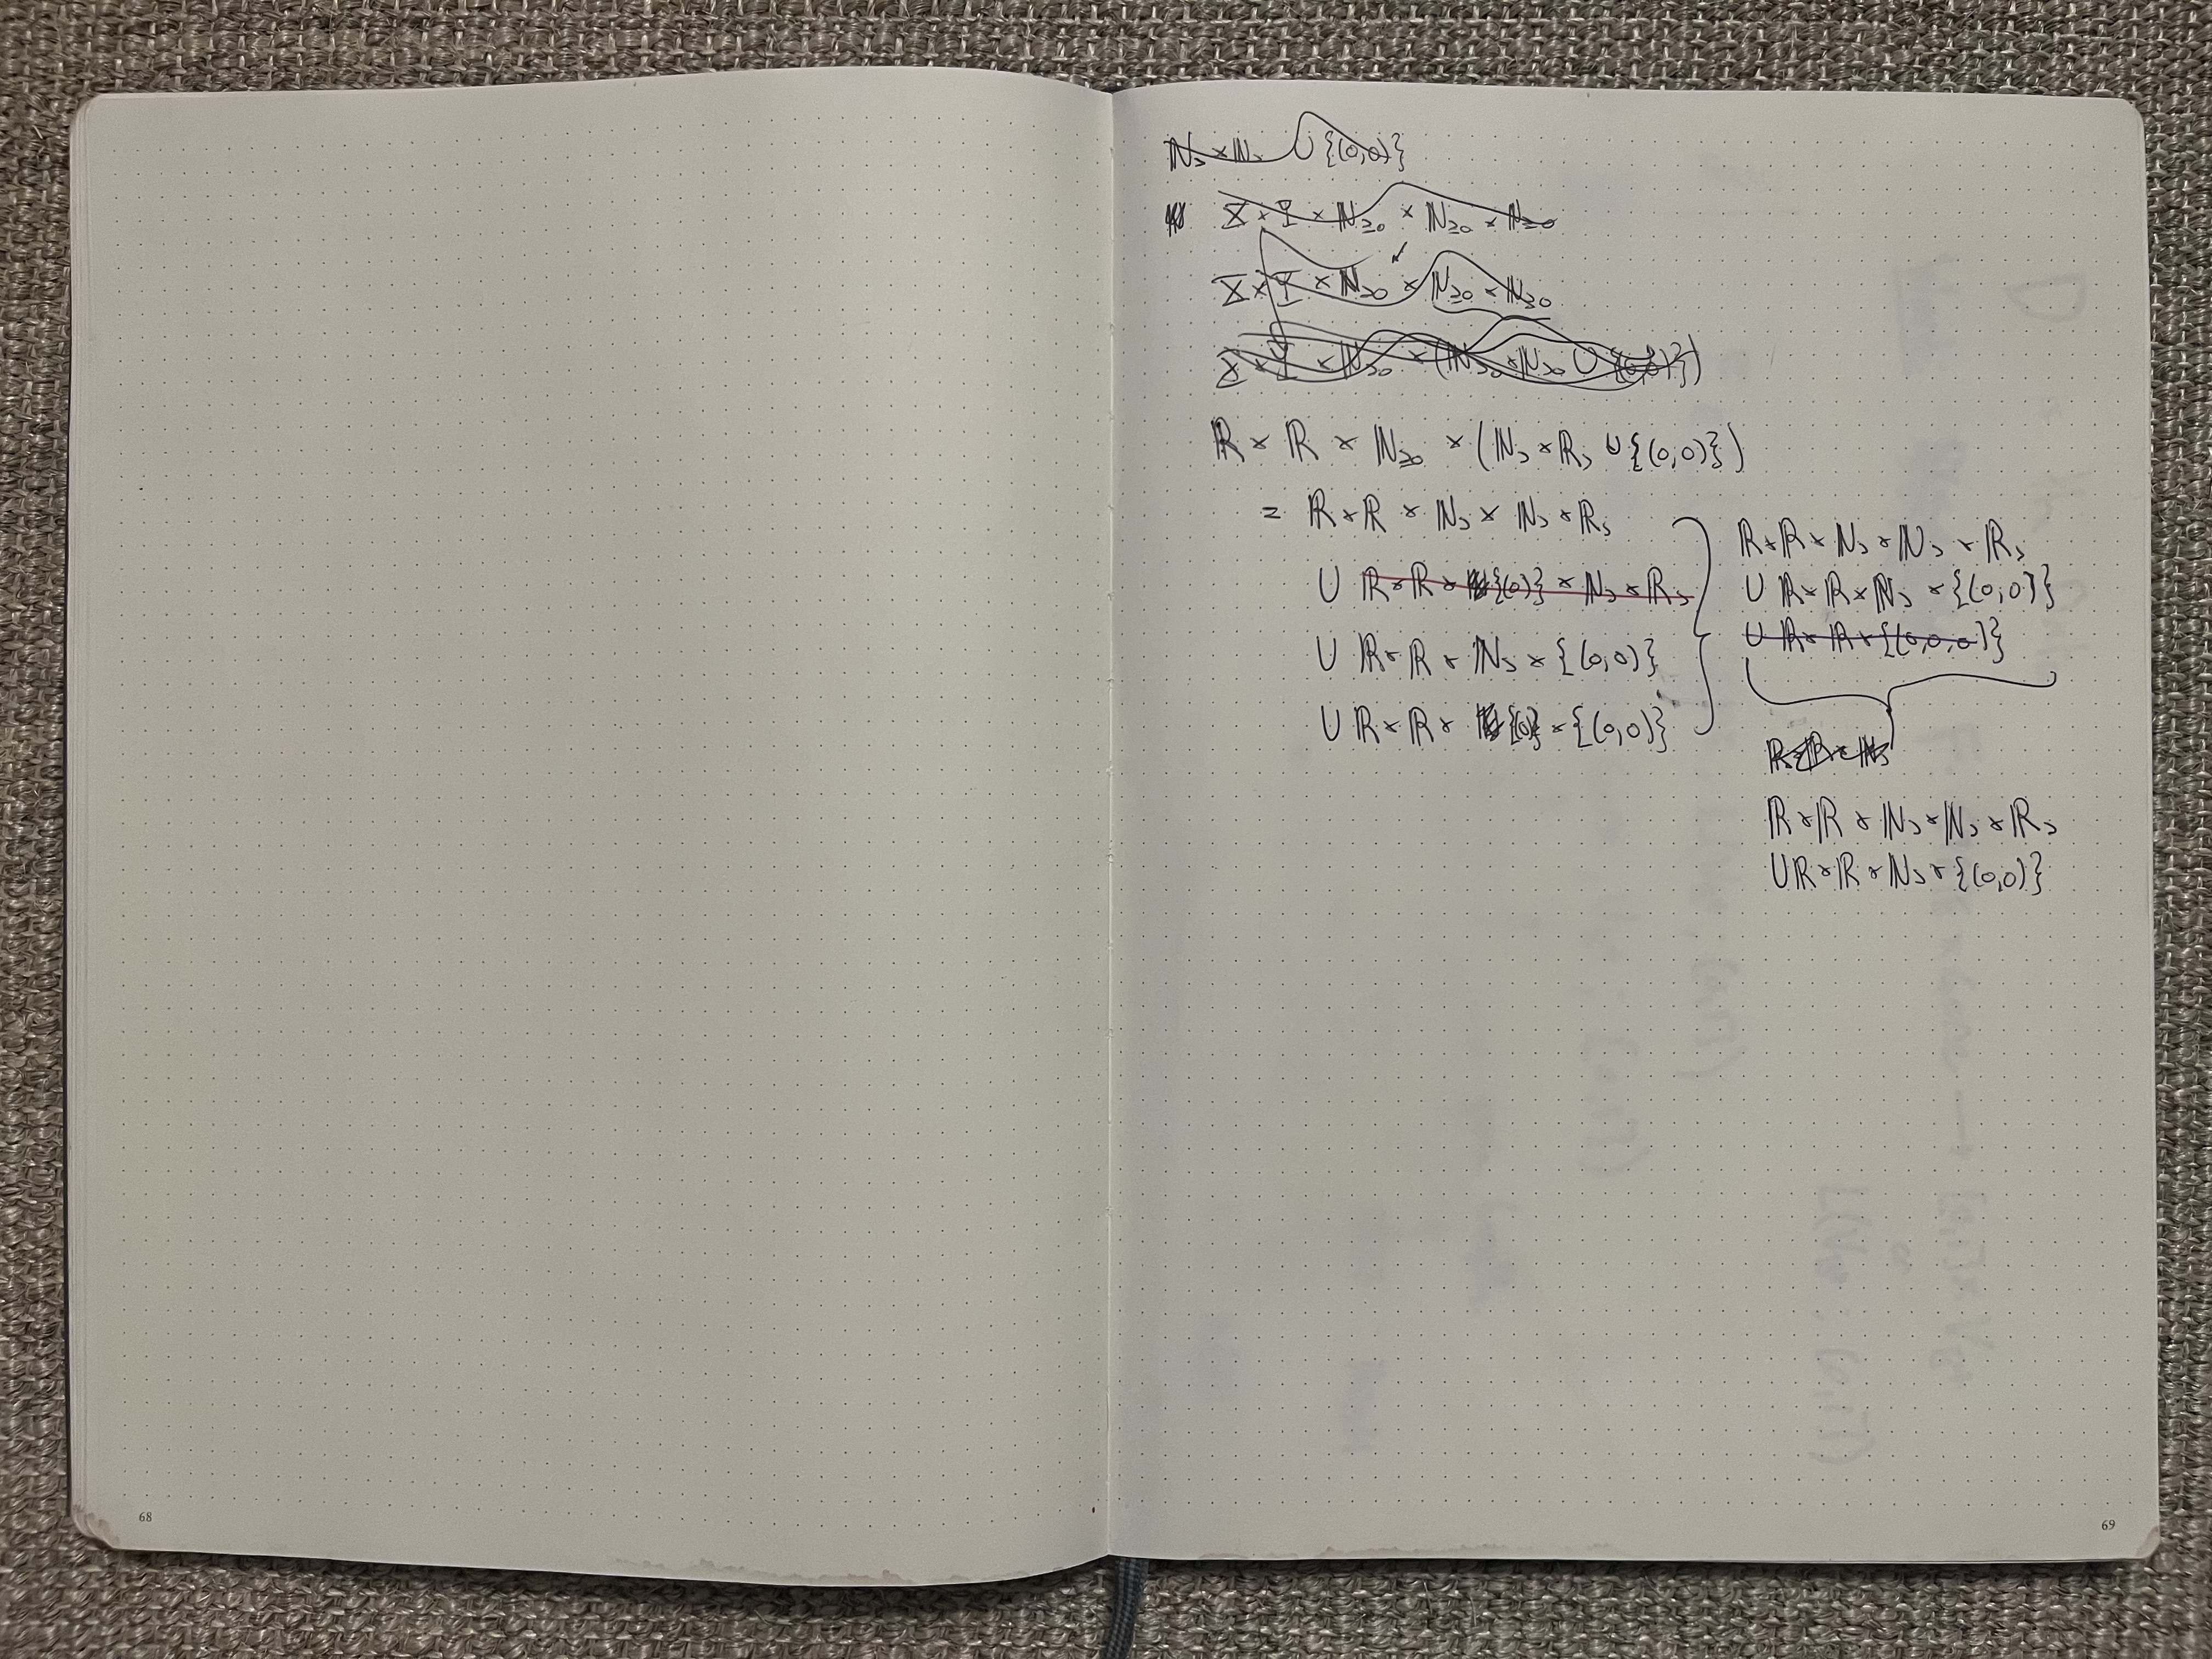 68
ℕ₎ × ℕ₎ ∪ {(0,0)}
X × Y × ℕ≥0 × ℕ≥0 × ℕ≥0
X × Y × ℕ≥0 × ℕ≥0 × ℕ≥0
X × Y × ℕ≥0 × (ℕ>0 × ℕ>0 ∪ {(0,0)})
ℝ × ℝ × ℕ≥0 × (ℕ> × ℝ> ∪ {(0,0)})
= ℝ × ℝ × ℕ> × ℕ> × ℝ>
∪ ℝ × ℝ × {(0)} × ℕ> × ℝ>
∪ ℝ × ℝ × ℕ> × {(0,0)}
∪ ℝ × ℝ × {0} × {(0,0)}
ℝ × ℝ × ℕ> × ℕ> × ℝ>
∪ ℝ × ℝ × ℕ> × {(0,0)}
∪ ℝ × ℝ × {(0,0,0)}
ℝ × ℝ × ℕ>
ℝ × ℝ × ℕ> × ℕ> × ℝ>
∪ ℝ × ℝ × ℕ> × {(0,0)}
69